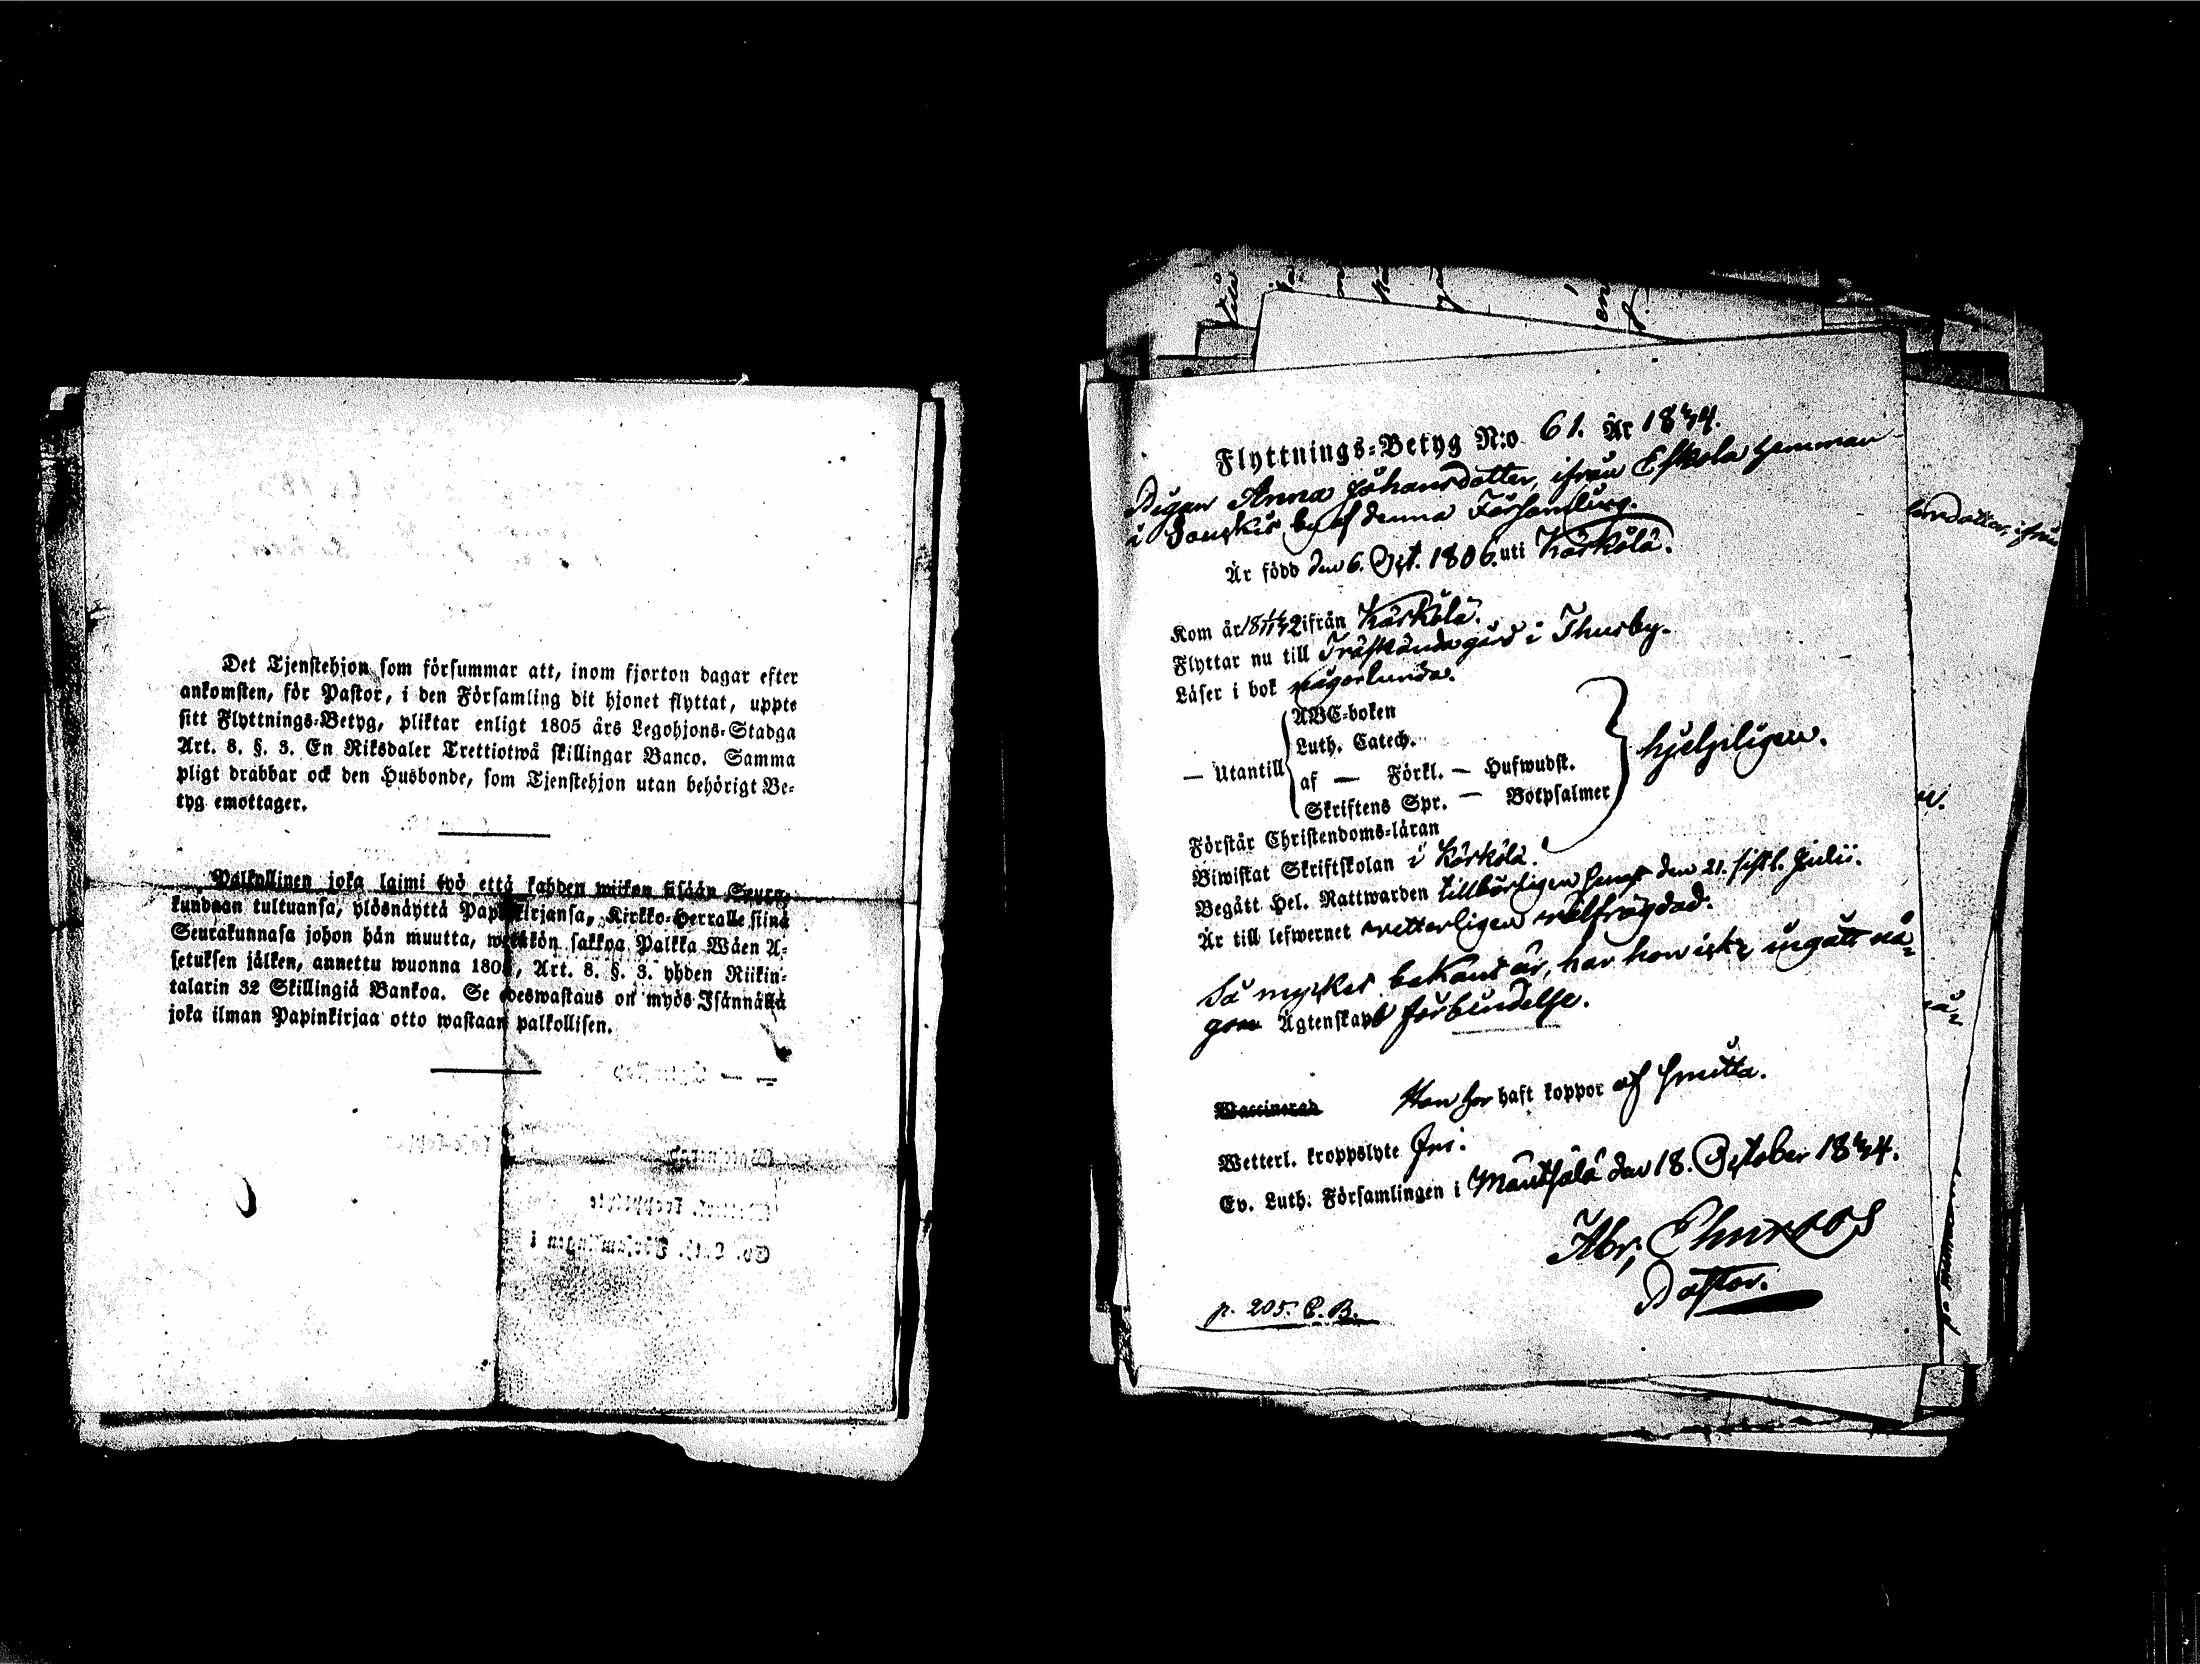 Det Tjenstehjon som försummar att, inom fjorton dagar efter
ankomsten, för Pastor, i den Församling dit hjonet flyttat, uppte
sitt Flyttnings-Betyg, pliktar enligt 1805 års Legohjons-Stadga
Art. 8. §. 3. En Riksdaler Trettiotwå skillingar Banco. Samma
pligt drabbar ock den Husbonde, som Tjenstehjon utan behörigt Be-
tyg emottager.
Palkollinen joka laimi lyö että kahden wiikon sisään Seura-
kundaan tultuansa, ylösnäyttä Papinkirjansa, Kirkko-Herralle siinä
Seurakunnasa johon hän muutta, wetäkön sakkoa Palkka Wäen A-
setuksen jälken, annettu wuonna 1805, Art. 8. §. 3. yhden Riikin-
talarin 32 Skillingiä Bankoa. Se edeswastaus on myös Isännällä
joka ilman Papinkirjaa otto wastaan palkollisen.
Flyttnings-Betyg N:o 61. År 1844.
Pigan Anna Johansdotter, ifrån Eskola hemman
i by af denna Församling.
Är född den 6. Oct. 1806. uti Kärkölä.
Kom år 1842 ifrån Kärkölä.
Flyttar nu till Träskända gård i Thusby.
Läser i bok någorlunda.
— Utantill
ABC-boken
Luth. Catech.
af — Förkl. — Hufwudst.
Skriftens Spr. — Botpsalmer
hjelpligen.
Förstår Christendoms-läran
Biwistat Skriftskolan i Kärkölä.
Begått Hel. Nattwarden tillbörligen senast den 21. sistl. Julii.
Är till lefwernet wetterligen wälfrägdad.
Så mycket bekant är, har hon icke ingått nå-
gon Ägtenskaps förbindelse.
Waccinerad Hon har haft koppor af smitta.
Wetterl. kroppslyte fri.
Ev. Luth. Församlingen i Mäntsälä den 18. October 1844.
Abr,
Pastor.
p. 205. C. B.